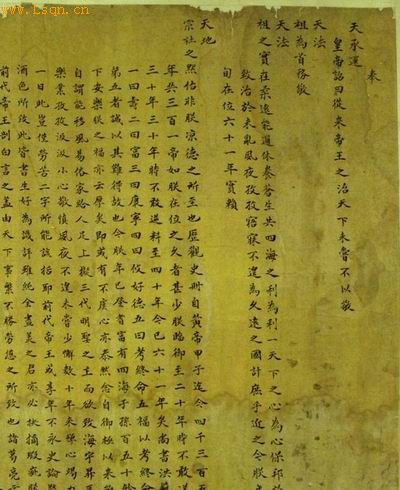 www.Lsqn.cn
奉
天承運
皇帝詔曰從來帝王之治天下未嘗不以敬
天法
祖為首務敬
天法
祖之實在柔遠能邇休養蒼生共四海之利為利一天下之心為心保邦
致治於未亂夙夜孜孜寤寐不遑為久遠之國計庶乎近之今朕
旬在位六十一年實賴
天地
宗社之默佑非朕涼德之所至也歷觀史冊自黃帝甲子迄今四千三百五
年共三百一帝如朕在位之久者甚少朕臨御至二十年時不敢逆
三十年三十年時不敢逆料至四十年今已六十一年矣尚書洪範
一曰壽二曰富三曰康寧四曰攸好德五曰考終命五福以考終命
第五者誠以其難得故也今朕年已登耆富有四海子孫百五十餘
下安樂朕之福亦云厚矣即或有不虞心亦泰然念自御極以來雖
自謂能移風易俗家給人足上擬三代明聖之主而欲致海宇昇平
樂業孜孜汲汲小心敬慎夙夜不遑未嘗少懈數十年來殫心竭力
一日此豈僅勞苦二字所能該括耶前代帝王或享年不永史論
酒色所致此皆書生好為譏評雖純全盡美之君亦必抉摘瑕疵朕
前代帝王剖白言之蓋由天下事繁不勝勞憊之所致也諸葛亮